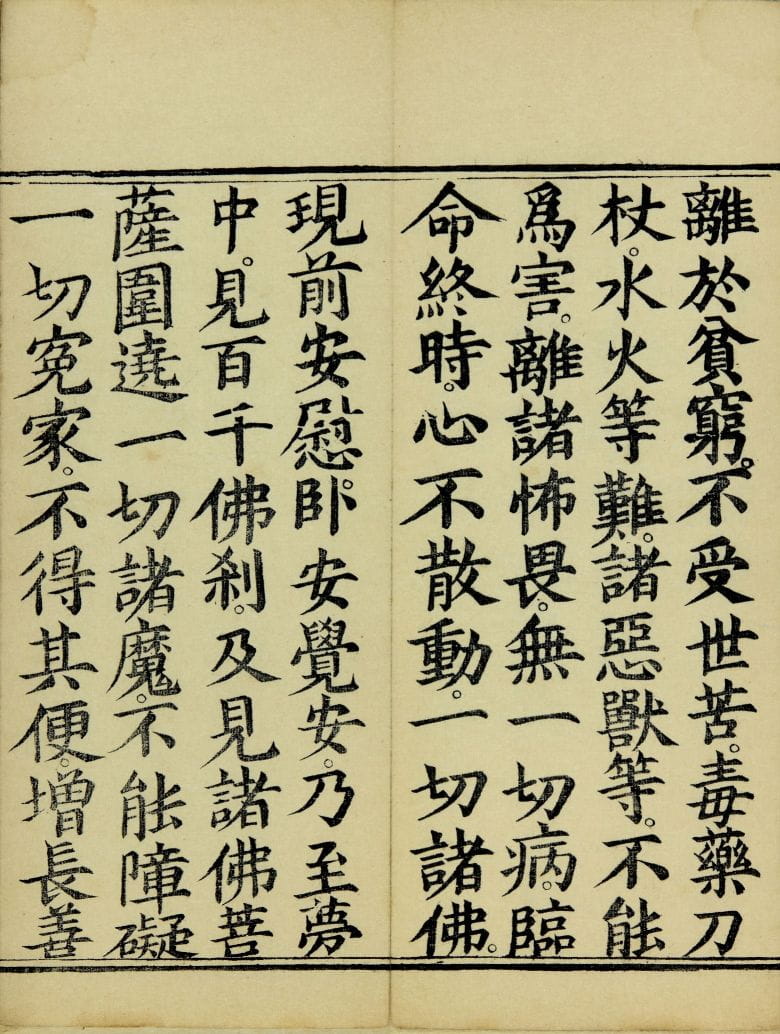 離於貧窮。不受世苦。毒藥刀
杖。水火等難。諸惡獸等。不能
爲害。離諸怖畏。無一切病。臨
命終時。心不散動。一切諸佛。
現前安慰。卧安覺安。乃至夢
中。見百千佛刹。及見諸佛菩
薩圍遶一切諸魔。不能障礙
一切寃家。不得其便。增長善